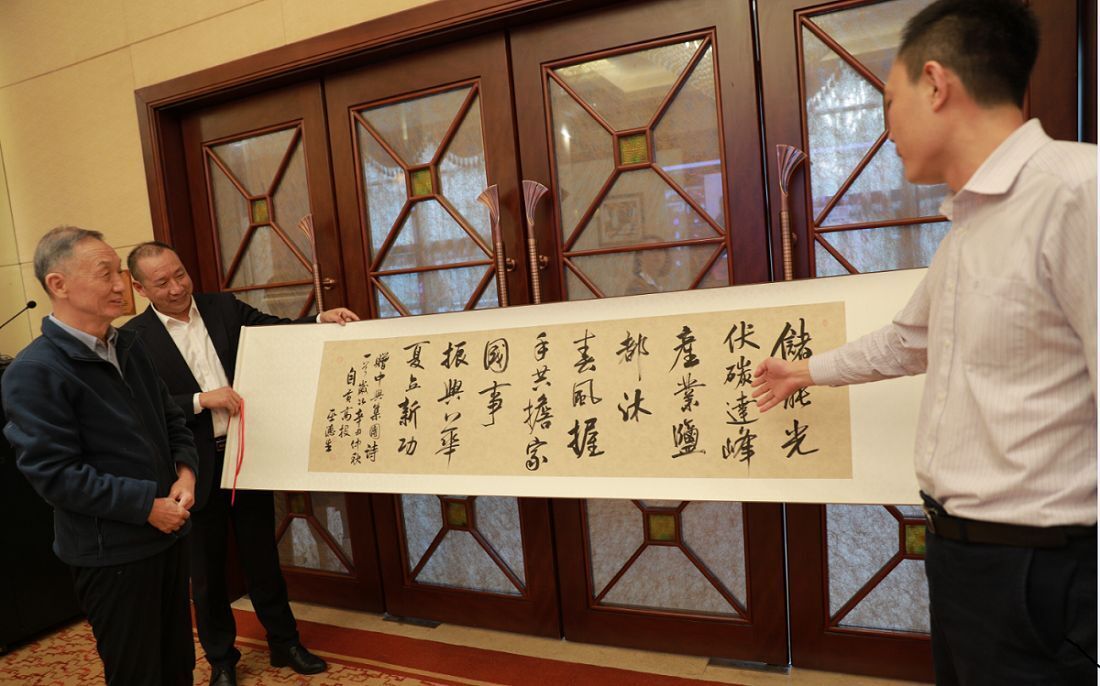 儲能光
伏碳達峰
產業鹽
都沐
春風握
手共擔家
國事
振興華
夏立新功
贈中興集團詩
一首歲次辛丑仲秋